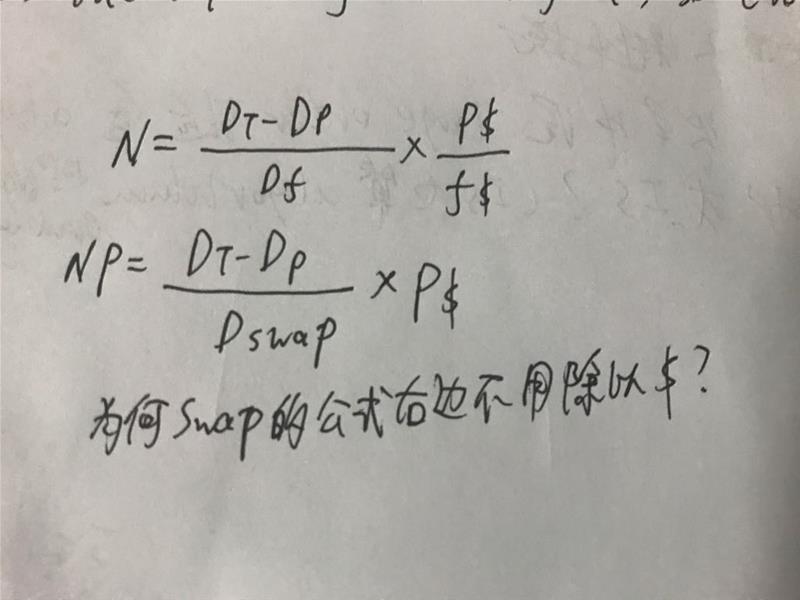 N = (DT - DP) / Df × P$ / f$
NP = (DT - DP) / Dswap × P$
为何Swap的公式右边不用除以$?